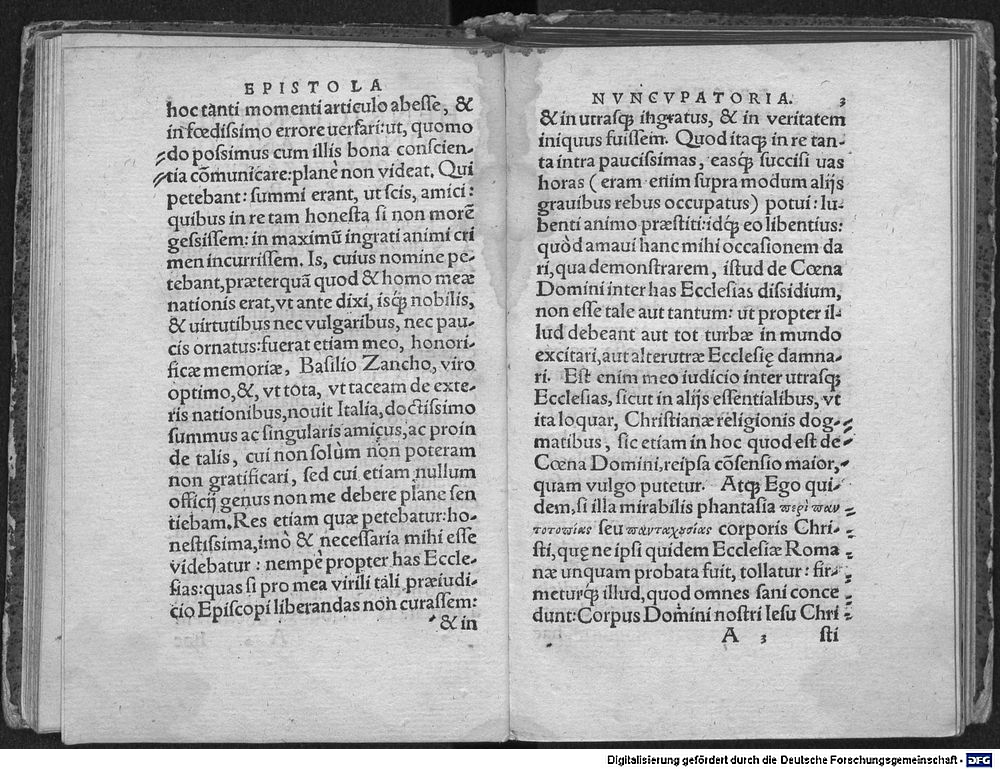 EPISTOLA
hoc tanti momenti articulo abesse, &
in fœdissimo errore uersari: ut, quomo
do possimus cum illis bona conscien-
tia cõmunicare: planè non videat. Qui
petebant: summi erant, ut scis, amici:
quibus in re tam honesta si non morẽ
gessissem: in maximũ ingrati animi cri
men incurrissem. Is, cuius nomine pe-
tebant, præterquã quod & homo meæ
nationis erat, vt ante dixi, isq́; nobilis,
& uirtutibus nec vulgaribus, nec pau-
cis ornatus: fuerat etiam meo, honori-
ficæ memoriæ, Basilio Zancho, viro
optimo, &, vt tota, vt taceam de exte-
ris nationibus, nouit Italia, doctissimo
summus ac singularis amicus, ac proin
de talis, cui non solùm non poteram
non gratificari, sed cui etiam nullum
officij genus non me debere plane sen
tiebam. Res etiam quæ petebatur: ho-
nestissima, imò & necessaria mihi esse
videbatur: nempè propter has Eccle-
sias: quas si pro mea virili tali præiudi-
cio Episcopi liberandas non curassem:
& in
NVNCVPATORIA. 3
& in utrasq́; ingratus, & in veritatem
iniquus fuissem. Quod itaq; in re tan-
ta intra paucissimas, easq́; succisi uas
horas (eram enim supra modum alijs
grauibus rebus occupatus) potui: lu-
benti animo præstiti: idq́; eo libentius:
quòd amaui hanc mihi occasionem da
ri, qua demonstrarem, istud de Cœna
Domini inter has Ecclesias dissidium,
non esse tale aut tantum: ut propter il-
lud debeant aut tot turbæ in mundo
excitari, aut alterutræ Ecclesię damna-
ri. Est enim meo iudicio inter utrasq;
Ecclesias, sicut in alijs essentialibus, vt
ita loquar, Christianæ religionis dog-
matibus, sic etiam in hoc quod est de
Cœna Domini, reipsa cõsensio maior,
quam vulgo putetur. Atq; Ego qui-
dem, si illa mirabilis phantasia περὶ παν
τοτοπίας seu πανταχουσίας corporis Chri-
sti, quę ne ipsi quidem Ecclesiæ Roma
næ unquam probata fuit, tollatur: fir-
meturq́; illud, quod omnes sani conce
dunt: Corpus Domini nostri Iesu Chri
A 3 sti
Digitalisierung gefördert durch die Deutsche Forschungsgemeinschaft - DFG